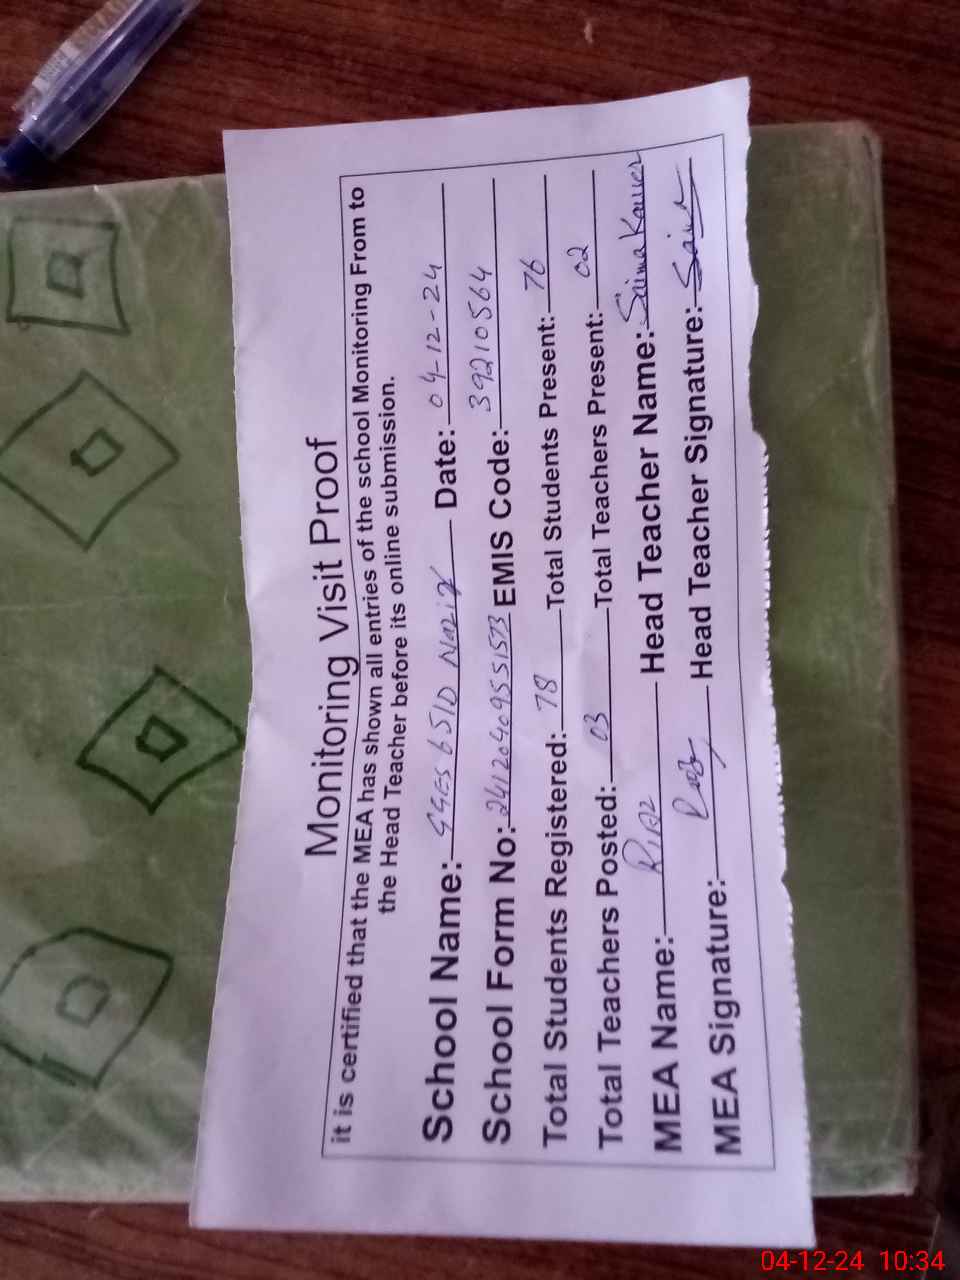 Monitoring Visit Proof
it is certified that the MEA has shown all entries of the school Monitoring From to
the Head Teacher before its online submission.
School Name: GGES 651D Nazir Date: 04-12-24
School Form No: 241204095515573 EMIS Code: 39210564
Total Students Registered: 78 Total Students Present: 76
Total Teachers Posted: 03 Total Teachers Present: 02
MEA Name: RIAZ Head Teacher Name: Saima Kauser
MEA Signature: Head Teacher Signature: Saima
04-12-24 10:34